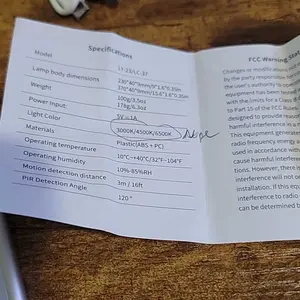 Specifications
Model
LT-23/LC-37
Lamp body dimensions
230*40*9mm/9*1.6*0.35in
370*40*9mm/15.6*1.6*0.35in
Weight
100g/3.5oz
178g/6.3oz
Power Input:
5V=1A
Light Color
3000K/4500K/6500K
Nope
Materials
Plastic(ABS + PC)
Operating temperature
10°C~+40°C/32°F~104°F
Operating humidity
10%-85%RH
Motion detection distance
3m / 16ft
PIR Detection Angle
120°
FCC Warning
Changes or modifications
by the party responsible for
the user's authority to
equipment has been
with the limits for a Class B
to Part 15 of the FCC Rules
designed to provide
harmful interference in a
This equipment
radio frequency energy a
used in accordance with
cause harmful interference
tions. However, there is
interference will not o
installation. If this equi
interference to radio
can be determined b